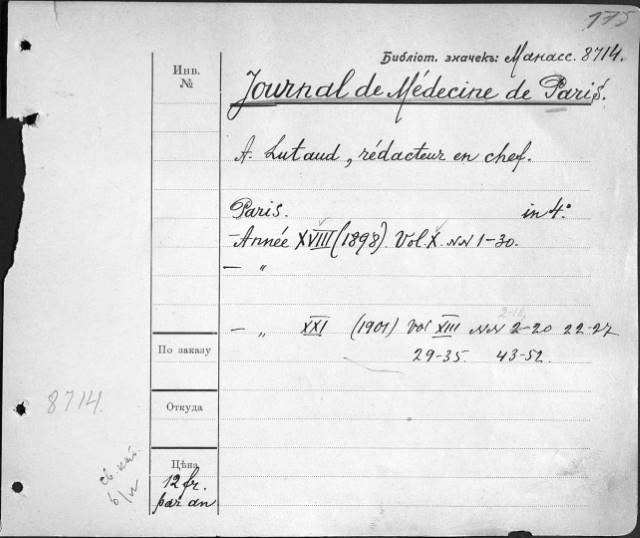 175
Библіот. значекъ: Манасс. 8714.
Инв.
№
Journal de Médecine de Paris.
A. Lutaud, rédacteur en chef.
Paris. in 4º
— Année XVIII (1898). Vol. X. NN 1-30.
— „
— „ XXI (1901) Vol XIII NN 2-20 22-27
29-35. 43-52.
По заказу
8714.
Откуда
Цѣна
12 fr.
par an